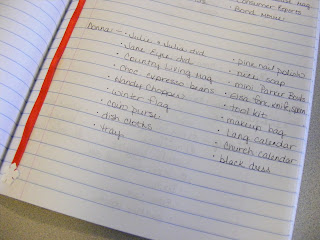 Consumer Reports
Bond Movies
Donna - · Julie & Julia dvd
· Jane Eyre dvd
· Country Living mag
· Choc espresso beans
· Handy Chopper
· winter flag
· coin purse
· dish cloths
· tray
· pink nail polish
· nice soap
· mini Parker Bowls
· Elsa
· tool kit
· makeup bag
· Lang calendar
· Church calendar
· black dress